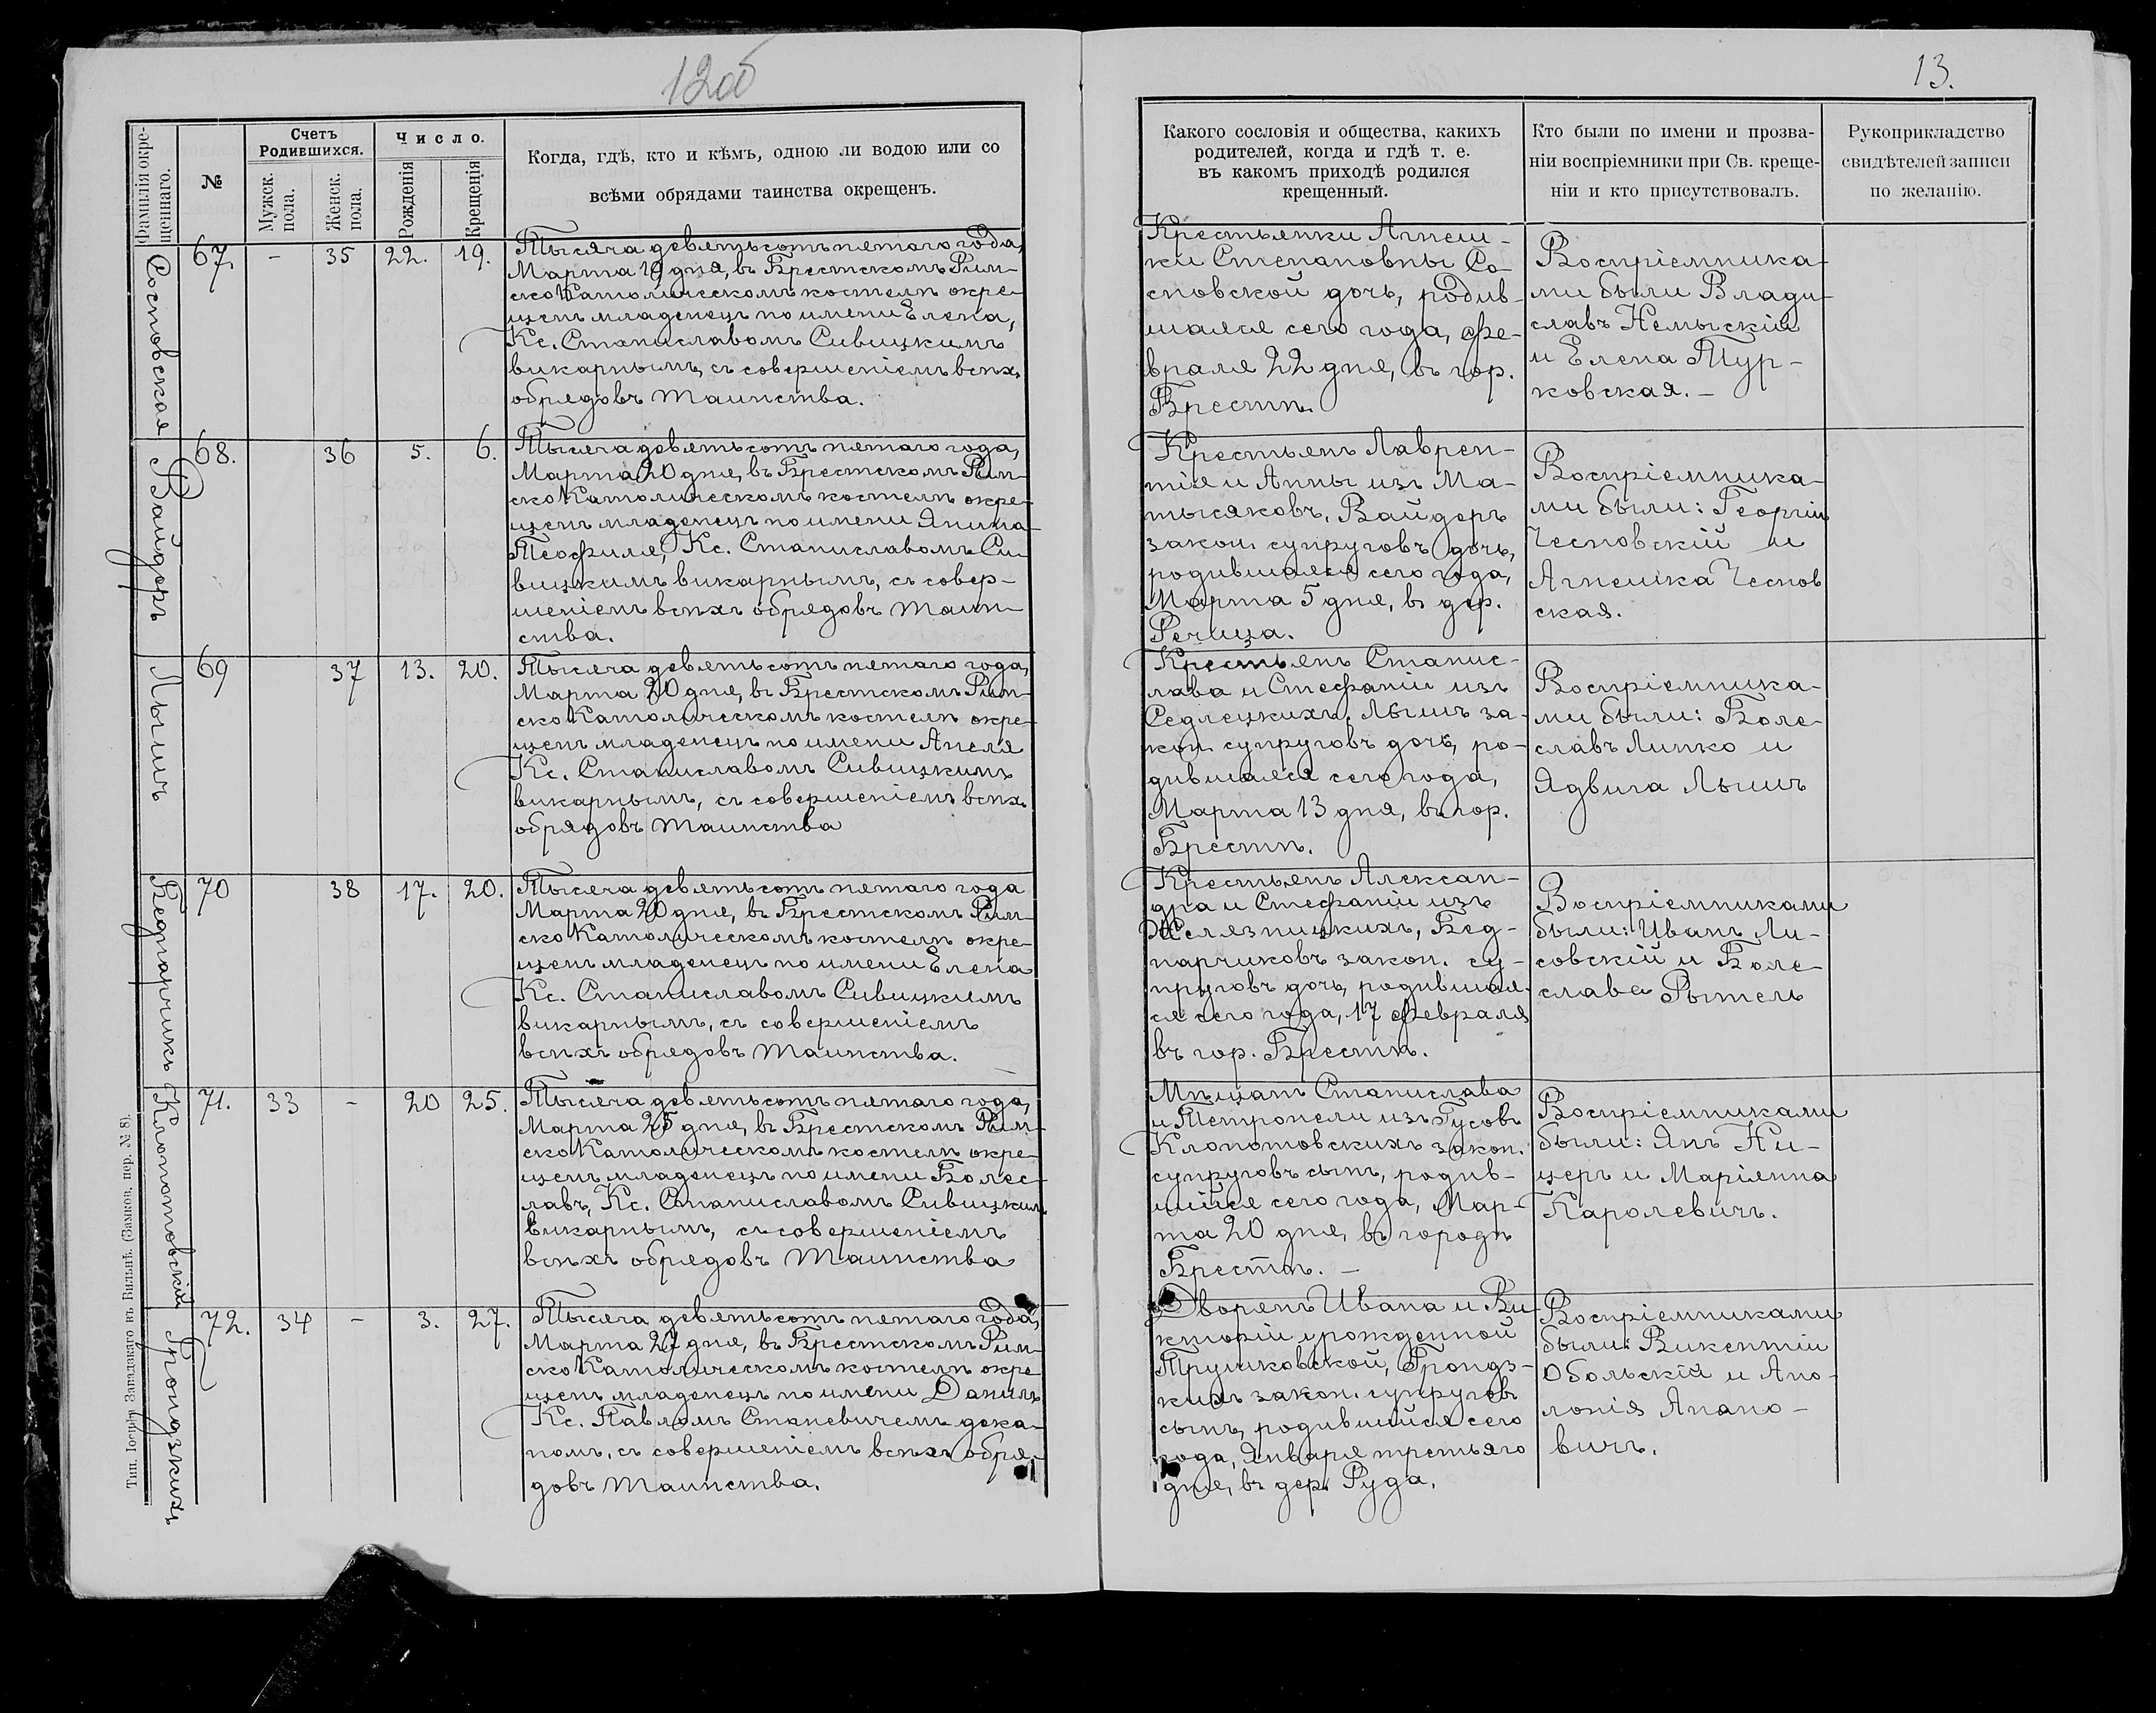 12об
Фамилія окре-
щеннаго.
№
Счетъ
Родившихся.
Мужск.
пола.
Женск.
пола.
Число.
Рожденія
Крещенія
Когда, гдѣ, кто и кѣмъ, одною ли водою или со
всѣми обрядами таинства окрещенъ.
Сосновская
67. - 35 22. 19.
Тысяча девятьсотъ пятаго года,
Марта 19 дня, въ Брестскомъ Рим-
ско Католическомъ костелѣ окре-
щенъ младенецъ по имени Елена,
Кс. Станиславомъ Сивицкимъ
викарнымъ, съ совершеніемъ всѣхъ
обрядовъ таинства.
Вайдоръ
68. 36 5. 6.
Тысяча девятьсотъ пятаго года,
Марта 20 дня, въ Брестскомъ Рим-
ско Католическомъ костелѣ окре-
щенъ младенецъ по имени Янина-
Теофиля, Кс. Станиславомъ Си-
вицкимъ викарнымъ, съ совер-
шеніемъ всѣхъ обрядовъ таин-
ства.
Лышъ
69 37 13. 20.
Тысяча девятьсотъ пятаго года,
Марта 20 дня, въ Брестскомъ Рим-
ско Католическомъ костелѣ окре-
щенъ младенецъ по имени Анеля
Кс. Станиславомъ Сивицкимъ
викарнымъ, съ совершеніемъ всѣхъ
обрядовъ таинства
Беднарчикъ
70 38 17. 20.
Тысяча девятьсотъ пятаго года
Марта 20 дня, въ Брестскомъ Рим-
ско Католическомъ костелѣ окре-
щенъ младенецъ по имени Елена
Кс. Станиславомъ Сивицкимъ
викарнымъ, съ совершеніемъ
всѣхъ обрядовъ таинства.
Клопотовскій
71. 33 - 20 25.
Тысяча девятьсотъ пятаго года,
Марта 25 дня, въ Брестскомъ Рим-
ско Католическомъ костелѣ окре-
щенъ младенецъ по имени Болес-
лавъ, Кс. Станиславомъ Сивицкимъ
викарнымъ, съ совершеніемъ
всѣхъ обрядовъ таинства
Грондзкихъ
72. 34 - 3. 27.
Тысяча девятьсотъ пятаго года,
Марта 27 дня, въ Брестскомъ Рим-
ско Католическомъ костелѣ окре
щенъ младенецъ по имени Данилъ
Кс. Павломъ Станевичемъ дека-
номъ, съ совершеніемъ всѣхъ обря-
довъ таинства.
Тип. Іосифа Завадзкаго въ Вильнѣ. (Замков. пер. № 8).
13.
Какого сословія и общества, какихъ
родителей, когда и гдѣ т. е.
въ какомъ приходѣ родился
крещенный.
Кто были по имени и прозва-
ніи воспріемники при Св. креще-
ніи и кто присутствовалъ.
Рукоприкладство
свидѣтелей записи
по желанію.
Крестьянки Агнеш-
ки Степановны Со-
сновской дочь, родив-
шаяся сего года, Фе-
враля 22 дня, въ гор.
Брестѣ.
Воспріемника-
ми были Влади-
славъ Немыскій
и Елена Тур-
ковская. -
Крестьянъ Лаврен-
тія и Анны изъ Ма-
тысяковъ, Вайдоръ
закон. супруговъ дочь,
родившаяся сего года,
Марта 5 дня, въ дер.
Речица.
Воспріемника-
ми были: Георгій
Чесновскій и
Агнешка Чеснов
ская.
Крестьянъ Станис-
лава и Стефаніи изъ
Седлецкихъ, Лышъ за-
кон. супруговъ дочь, ро-
дившаяся сего года,
Марта 13 дня, въ гор.
Брестѣ.
Воспріемника-
ми были: Боле-
славъ Липко и
Ядвига Лышъ
Крестьянъ Алексан-
дра и Стефаніи изъ
Желязницкихъ, Бед-
нарчиковъ закон. су-
пруговъ дочь, родившая-
ся сего года, 17 Февраля
въ гор. Брестѣ.
Воспріемниками
были: Иванъ Ли-
совскій и Боле-
слава Рытель
Мѣщанъ Станислава
и Петронели изъ Гусовъ
Клопотовскихъ закон.
супруговъ сынъ, родив-
шійся сего года, Мар-
та 20 дня, въ городѣ
Брестѣ. -
Воспріемниками
были: Янъ Ни-
церъ и Маріянна
Каролевичъ.
Дворянъ Ивана и Ви-
кторіи урожденной
Трушковской, Грондз-
кихъ закон. супруговъ
сынъ, родившійся сего
года, Января третьяго
дня, въ дер. Руда.
Воспріемниками
были: Викентій
Обольскій и Апо-
лонія Апано-
вичъ.